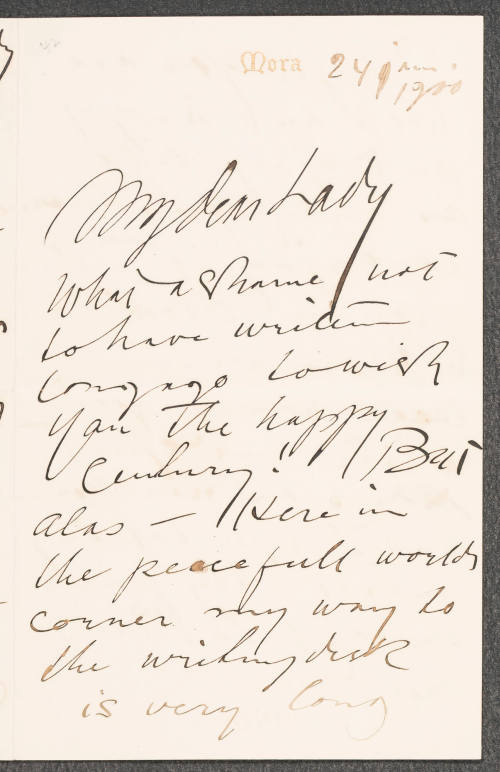 Mora 24 Jan. 1900
My dear Lady
What a shame not
to have written
long ago to wish
you the happy
century! But
alas — Here in
the peacefull worlds
corner my way to
the writing desk
is very long